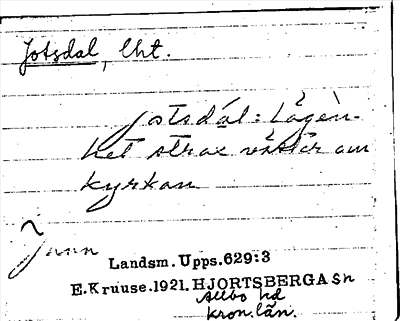 Jotsdal, lht.
jotsdál: Lägen-
het strax väster om
kyrkan
Jann
Landsm. Upps. 629:3
E.Kruuse.1921. HJORTSBERGA Sn
Allbo hd
Kron. län.